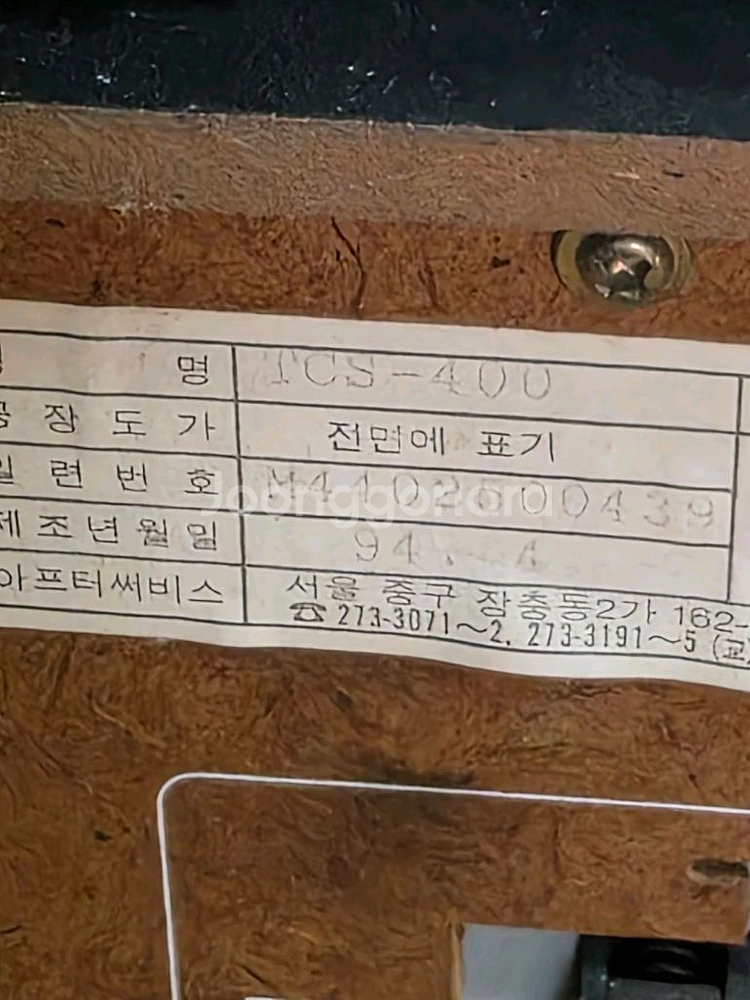 명 TCS-400
공장도가 전면에 표기
일련번호 M4402600439
제조년월일 94. 4
아프터써비스 서울 중구 장충동2가 162-
☎ 273-3071~2, 273-3191~5 (교)
Joonggonara